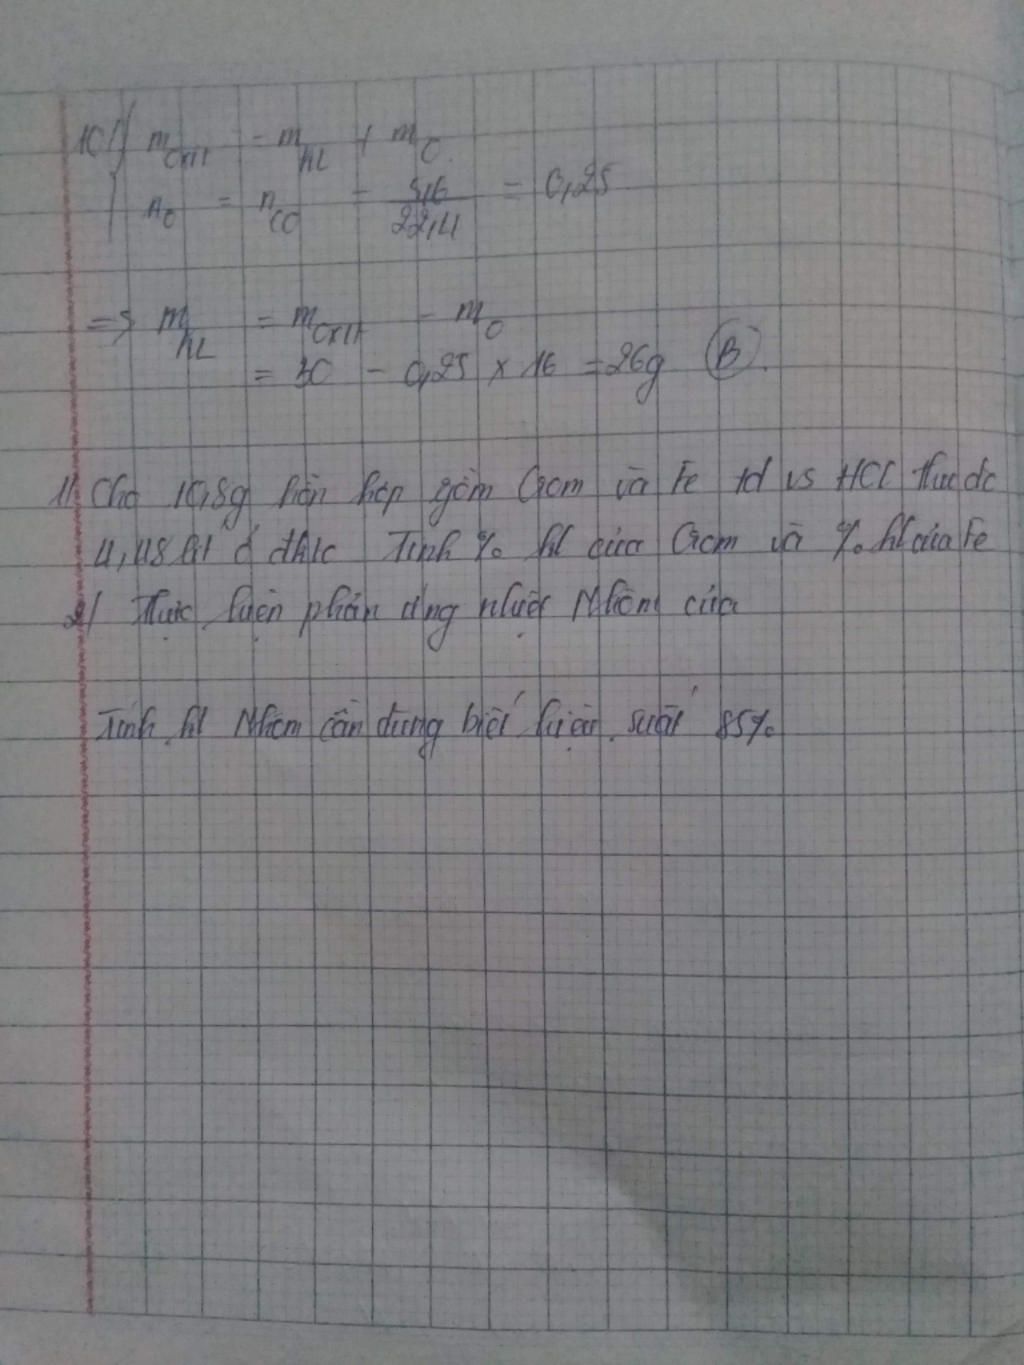 10/ m oxit = m KL + m O
n O = n CO = 5,6 / 22,4 = 0,25
=> m KL = m oxit - m O
= 30 - 0,25 x 16 = 26g (B).
1/ Cho 10,8g hỗn hợp gồm Crom và Fe td vs HCl thu dc
4,48 lít ở đktc Tính % kl của Crom và % kl của Fe
2/ Thực hiện phản ứng nhiệt Nhôm của
Tính kl Nhôm cần dùng biết hiệu suất 85%